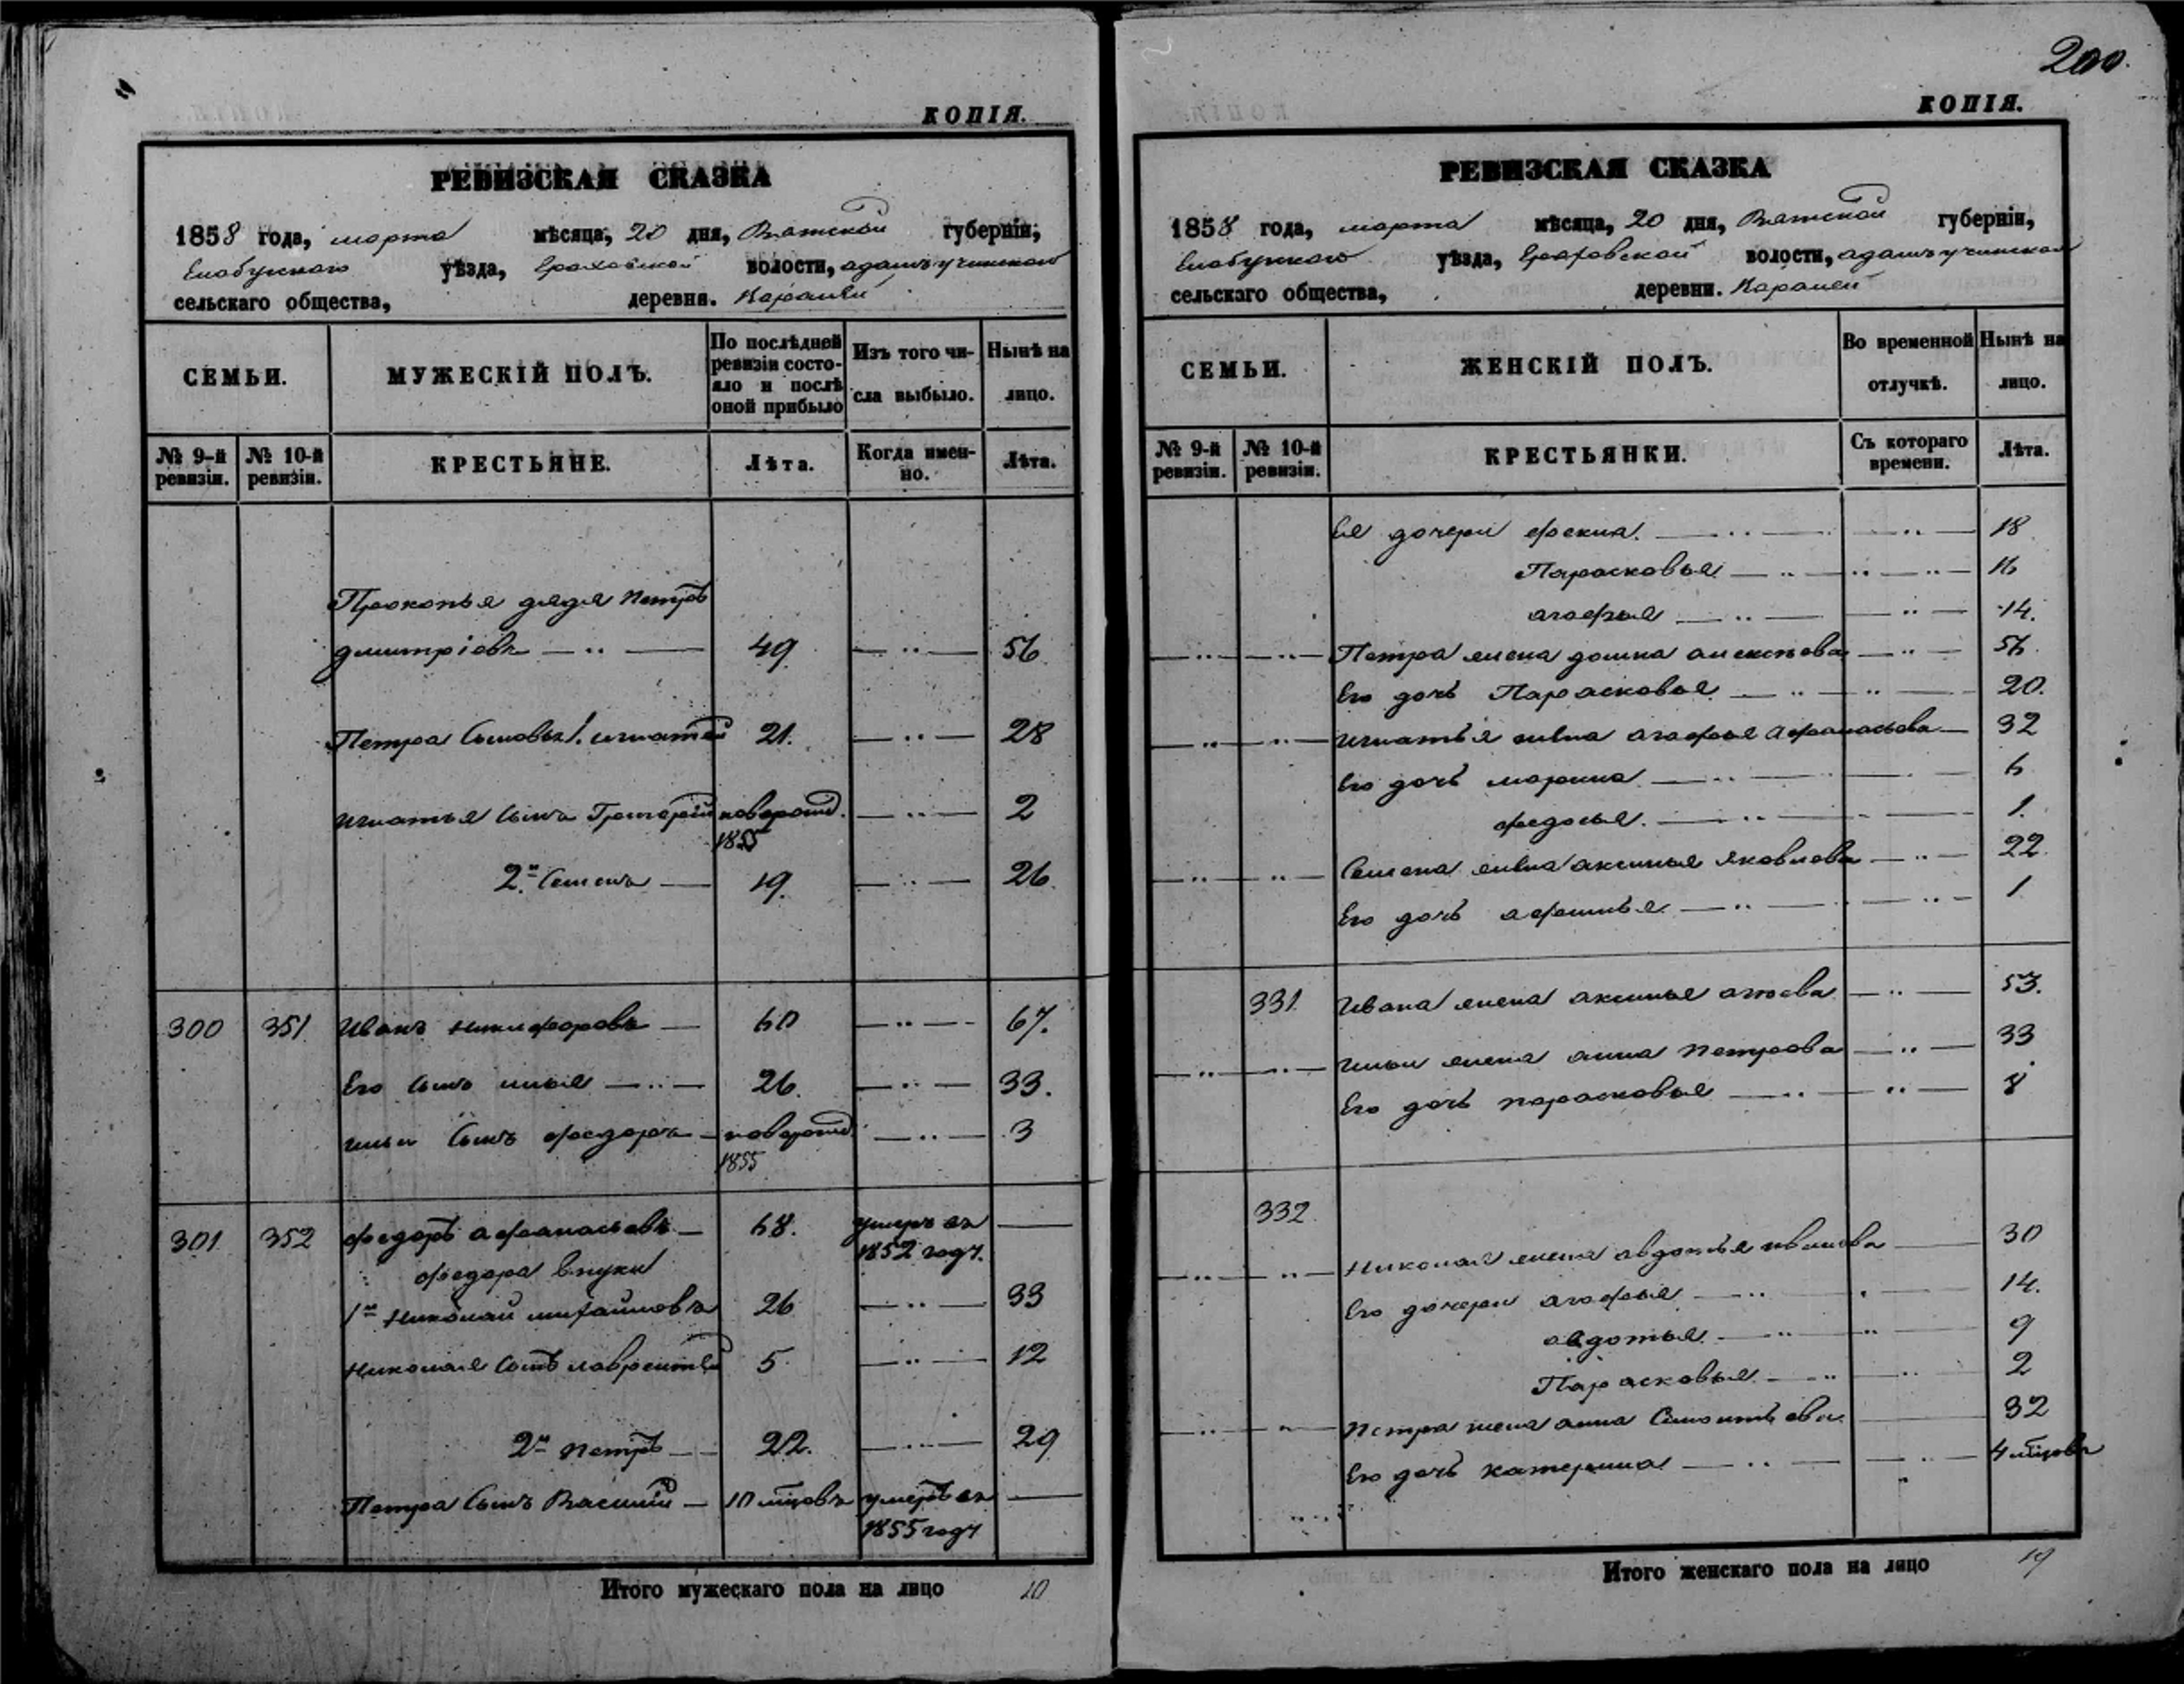 КОПІЯ.
РЕВИЗСКАЯ СКАЗКА
1858 года, марта мѣсяца, 20 дня, Вятской губерніи,
Елабужскаго уѣзда, Граховской волости, адамъучинскаго
сельскаго общества, деревня.
СЕМЬИ.
МУЖЕСКІЙ ПОЛЪ.
По послѣдней ревизіи состояло и послѣ оной прибыло
Изъ того числа выбыло.
Нынѣ на лицо.
№ 9-й ревизіи.
№ 10-й ревизіи.
КРЕСТЬЯНЕ.
Лѣта.
Когда именно.
Лѣта.
Прокопья дядя Петръ
дмитріевъ 49 56
Петра Сыновья 1. игнатій 21. 28
игнатья Сынъ Григорій новорожд. 2
1855
2й Семенъ 19. 26
300 351 Иванъ никифоровъ 60 67.
Его Сынъ илья 26. 33.
ильи Сынъ федоръ новорожд 3
1855
301 352 федоръ афанасьевъ 68. умеръ въ
1852 году.
федора внуки
1й николай михайловъ 26 33
николая Сынъ лаврентій 5. 12
2й петръ 22. 29
Петра Сынъ Василій 10 мцовъ умеръ въ
1855 году
Итого мужескаго пола на лицо 10
200.
КОПІЯ.
РЕВИЗСКАЯ СКАЗКА
1858 года, марта мѣсяца, 20 дня, Вятской губерніи,
Елабужскаго уѣзда, Граховской волости, адамъучинскаго
сельскаго общества, деревни.
СЕМЬИ.
ЖЕНСКІЙ ПОЛЪ.
Во временной отлучкѣ.
Нынѣ на лицо.
№ 9-й ревизіи.
№ 10-й ревизіи.
КРЕСТЬЯНКИ.
Съ котораго времени.
Лѣта.
Ея дочери фекла. 18
Парасковья 16
агафья 14.
Петра жена домна алексѣева 56.
Его дочь Парасковья 20.
игнатья жена агафья афанасьева 32
Его дочь марина 6
федосья. 1.
Семена жена аксинья Яковлева 22
Его дочь афимья 1
331 Ивана жена аксинья 53.
ильи жена анна Петрова 33
Его дочь парасковья 8
332
николая жена авдотья иванова 30
Его дочери агафья 14.
авдотья 9
Парасковья 2
Петра жена анна 32
Его дочь катерина 4 мцовъ
Итого женскаго пола на лицо 19